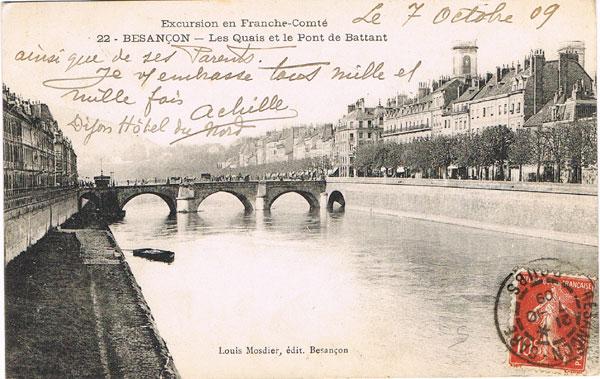 Excursion en Franche-Comté
Le 7 Octobre 09
22 - BESANÇON — Les Quais et le Pont de Battant
ainsi que de ses Parents.
Je vous embrasse tous mille et
mille fois
Achille
Dijon Hôtel du Nord
Louis Mosdier, édit. Besançon
BESANÇON
DOUBS